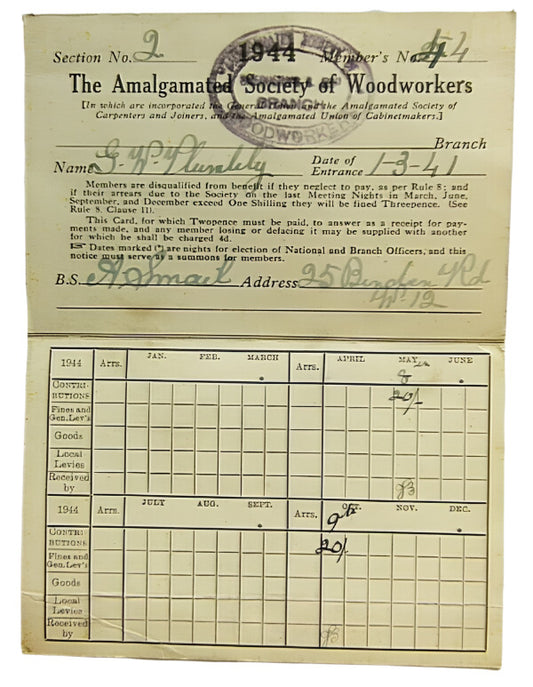 Section No. 2 1944 Member's No. 44
The Amalgamated Society of Woodworkers
[In which are incorporated the General Union and the Amalgamated Society of
Carpenters and Joiners, and the Amalgamated Union of Cabinetmakers.]
BRANCH
WOODWORKERS
Branch
Name G. W. Date of
Entrance 1-3-41
Members are disqualified from benefit if they neglect to pay, as per Rule 8; and
if their arrears due to the Society on the last Meeting Nights in March, June,
September, and December exceed One Shilling they will be fined Threepence. (See
Rule 8, Clause 11).
This Card, for which Twopence must be paid, to answer as a receipt for pay-
ments made, and any member losing or defacing it may be supplied with another
for which he shall be charged 4d.
☞ Dates marked (*) are nights for election of National and Branch Officers, and this
notice must serve as a summons for members.
B.S. A Smail Address 25 Rd
W.12
1944 Arrs. JAN. FEB. MARCH Arrs. APRIL MAY JUNE
8
CONTRI-
BUTIONS 20/-
Fines and
Gen. Lev's
Goods
Local
Levies
Received
by
1944 Arrs. JULY AUG. SEPT. Arrs. OCT. NOV. DEC.
9th
CONTRI-
BUTIONS 20/-
Fines and
Gen. Lev's
Goods
Local
Levies
Received
by